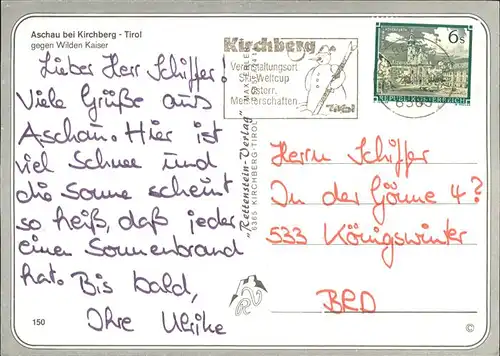 Aschau bei Kirchberg - Tirol
gegen Wilden Kaiser
Lieber Herr Schiffer!
Viele Grüße aus
Aschau. Hier ist
viel Schnee und
die Sonne scheint
so heiß, daß jeder
einen Sonnenbrand
hat. Bis bald,
Ihre Ulrike
150
Kirchberg
Veranstaltungsort
Ski-Weltcup
Österr.
Meisterschaften
Tirol
6 S
REPUBLIK ÖSTERREICH
"Rettenstein-Verlag"
6365 KIRCHBERG-TIROL
Herrn Schiffer
In der Gönne 4?
533 Königswinter
BRD
©